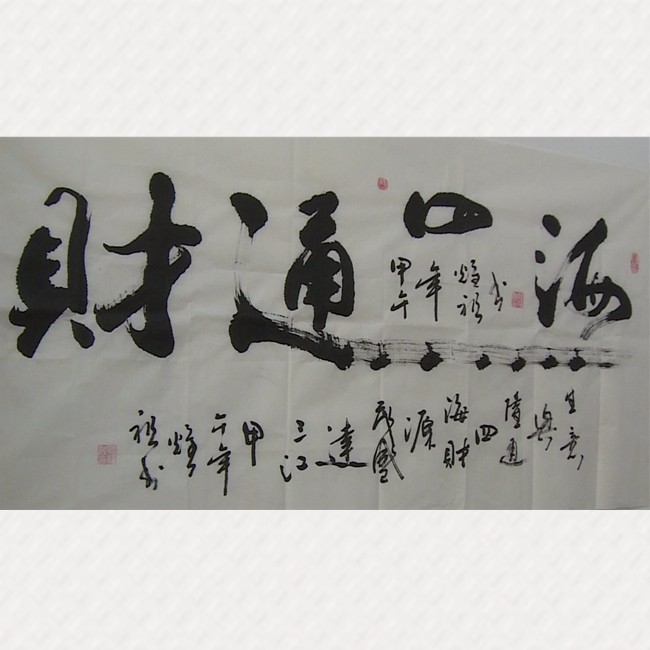 財通四海
甲午
年
祖
书
生意
興
隆通
四
海財
源
茂盛
達
三江
甲
午年
祖书